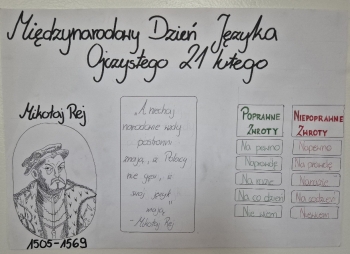 Międzynarodowy Dzień Języka
Ojczystego 21 lutego
Mikołaj Rej
1505-1569
„A niechaj
narodowie wżdy
postronni
znają, iż Polacy
nie gęsi, iż
swój język
mają."
- Mikołaj Rej
POPRAWNE
ZWROTY
Na pewno
Naprawdę
Na razie
Na co dzień
Nie wiem
NIEPOPRAWNE
ZWROTY
Napewno
Na prawdę
Narazie
Na codzień
Niewiem